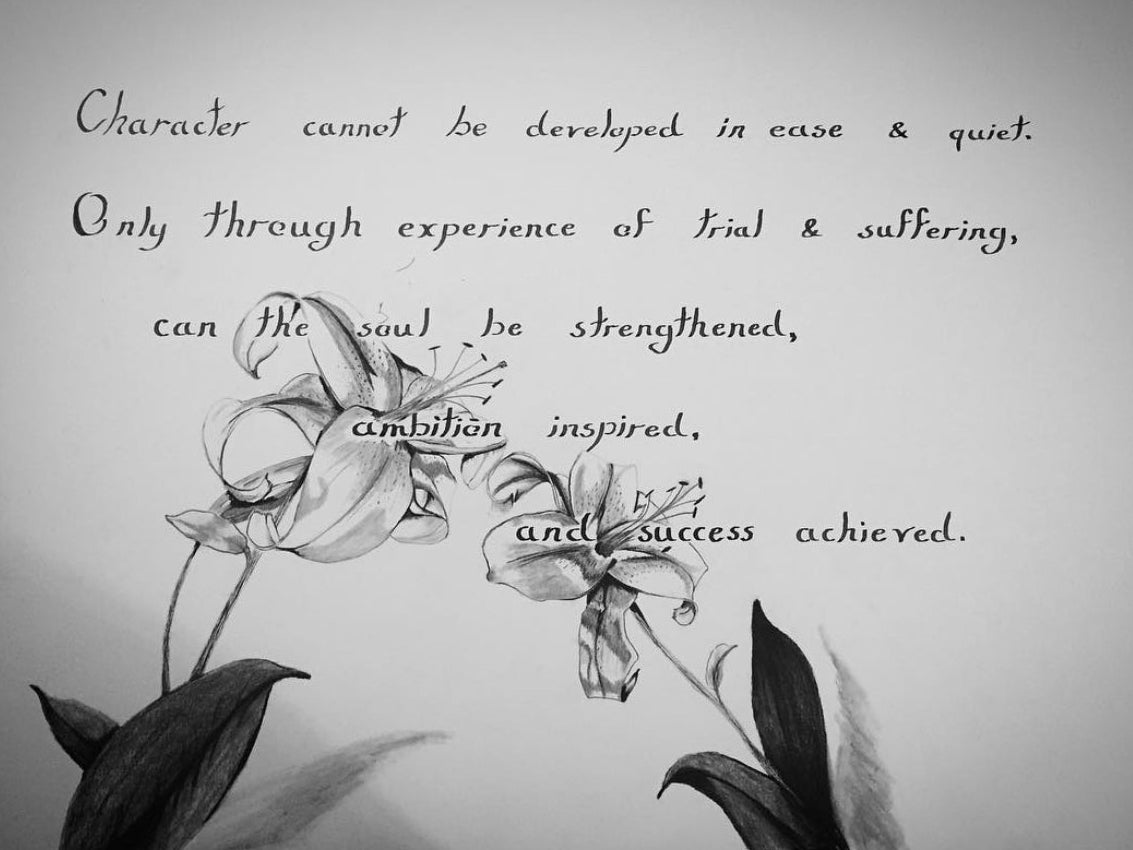 Character cannot be developed in ease & quiet.
Only through experience of trial & suffering,
can the soul be strengthened,
ambition inspired,
and success achieved.